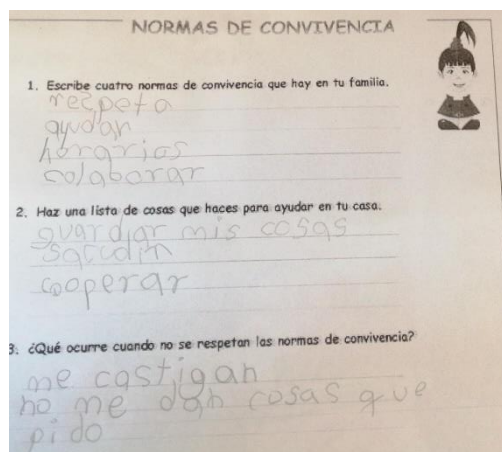 NORMAS DE CONVIVENCIA
1. Escribe cuatro normas de convivencia que hay en tu familia.
respeta
ayudan
horarios
colaborar
2. Haz una lista de cosas que haces para ayudar en tu casa.
guardiar mis cosas
saccudin
cooperar
3. ¿Qué ocurre cuando no se respetan las normas de convivencia?
me castigan
no me dan cosas que
pido